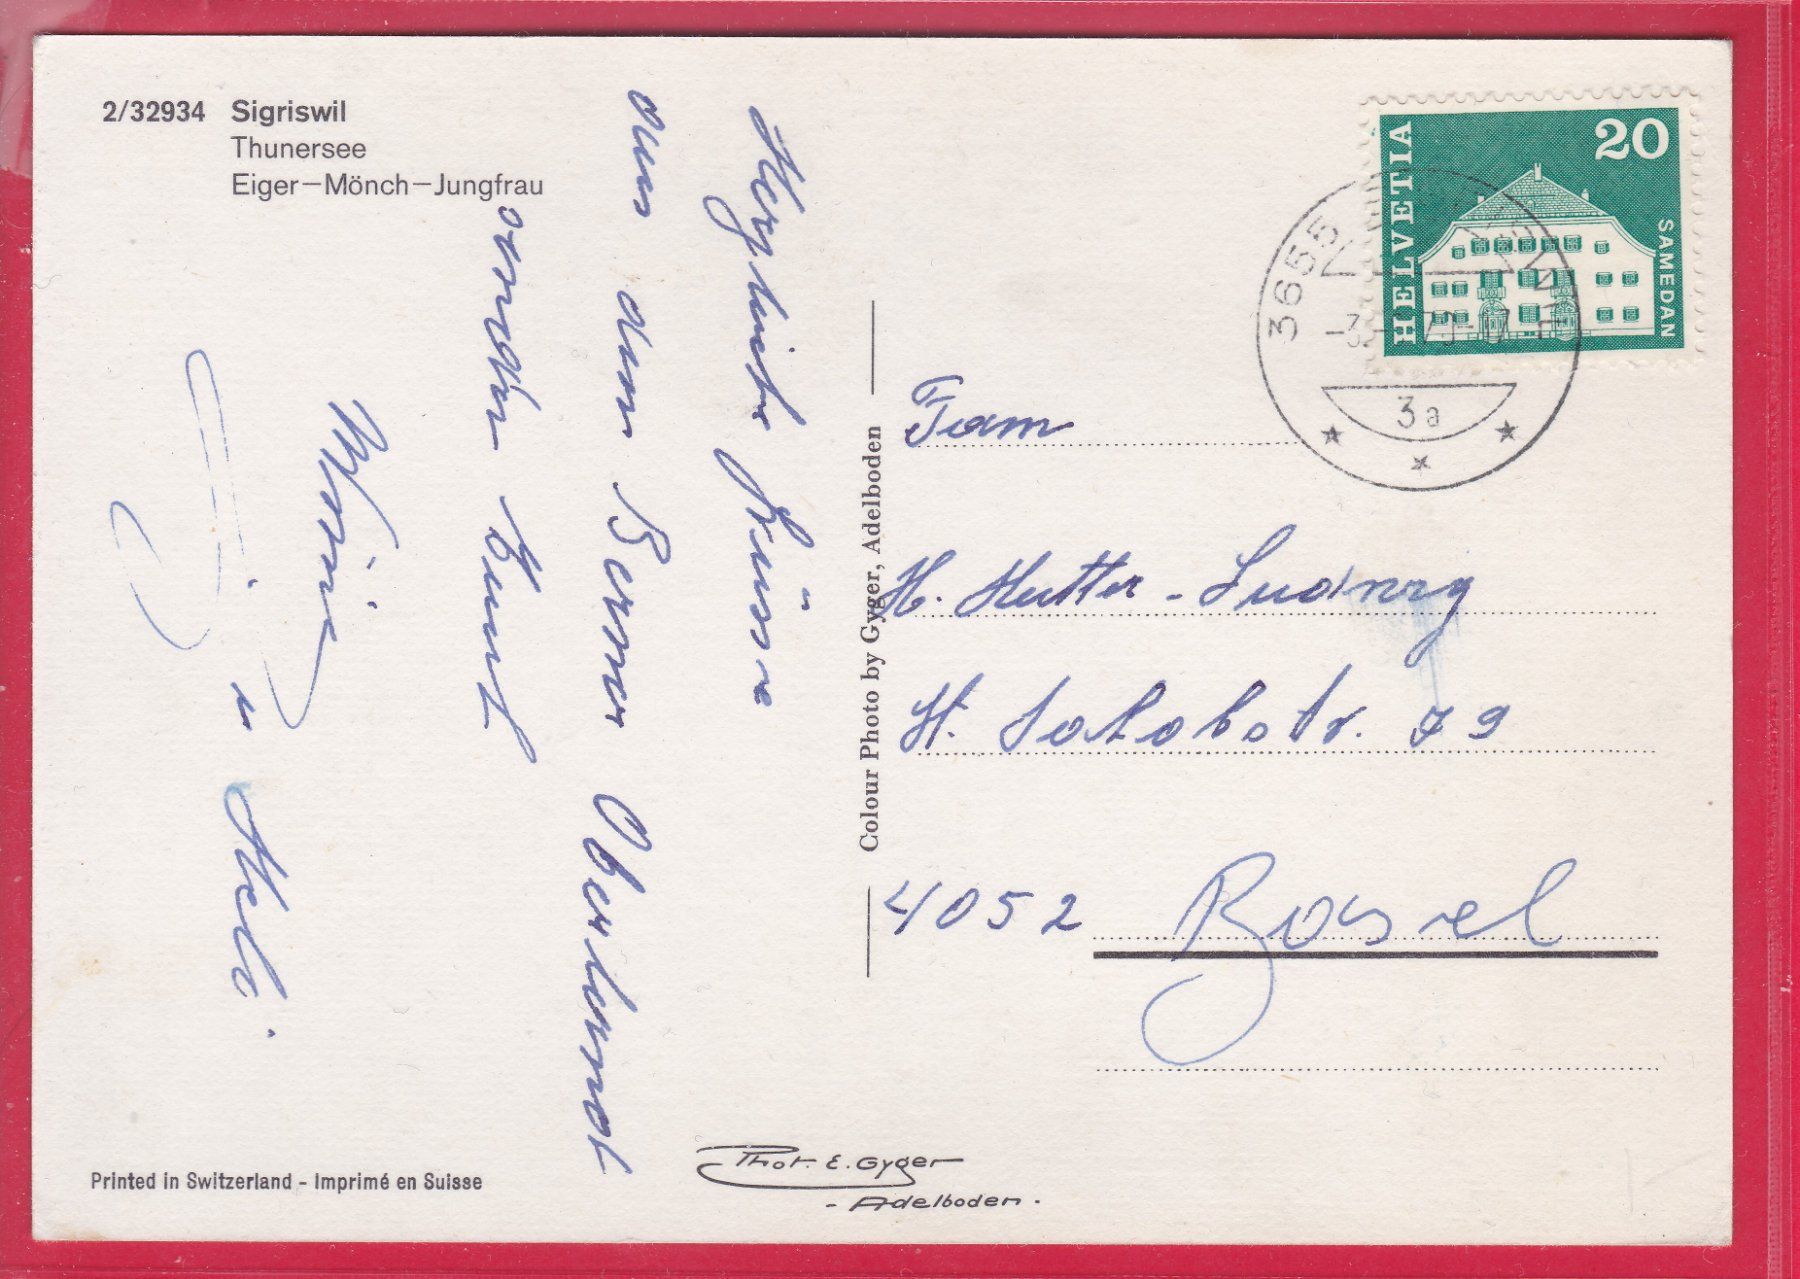 2/32934 Sigriswil
Thunersee
Eiger–Mönch–Jungfrau
Herzliche Grüsse
aus dem Berner Oberland
senden Emil
u Heli.
HELVETIA
20
SAMEDAN
3655
3a
Colour Photo by Gyger, Adelboden
Fam
H. Hutter - Ludwig
St. Jakobstr. 79
4052 Basel
Phot. E. Gyger
- Adelboden -
Printed in Switzerland - Imprimé en Suisse